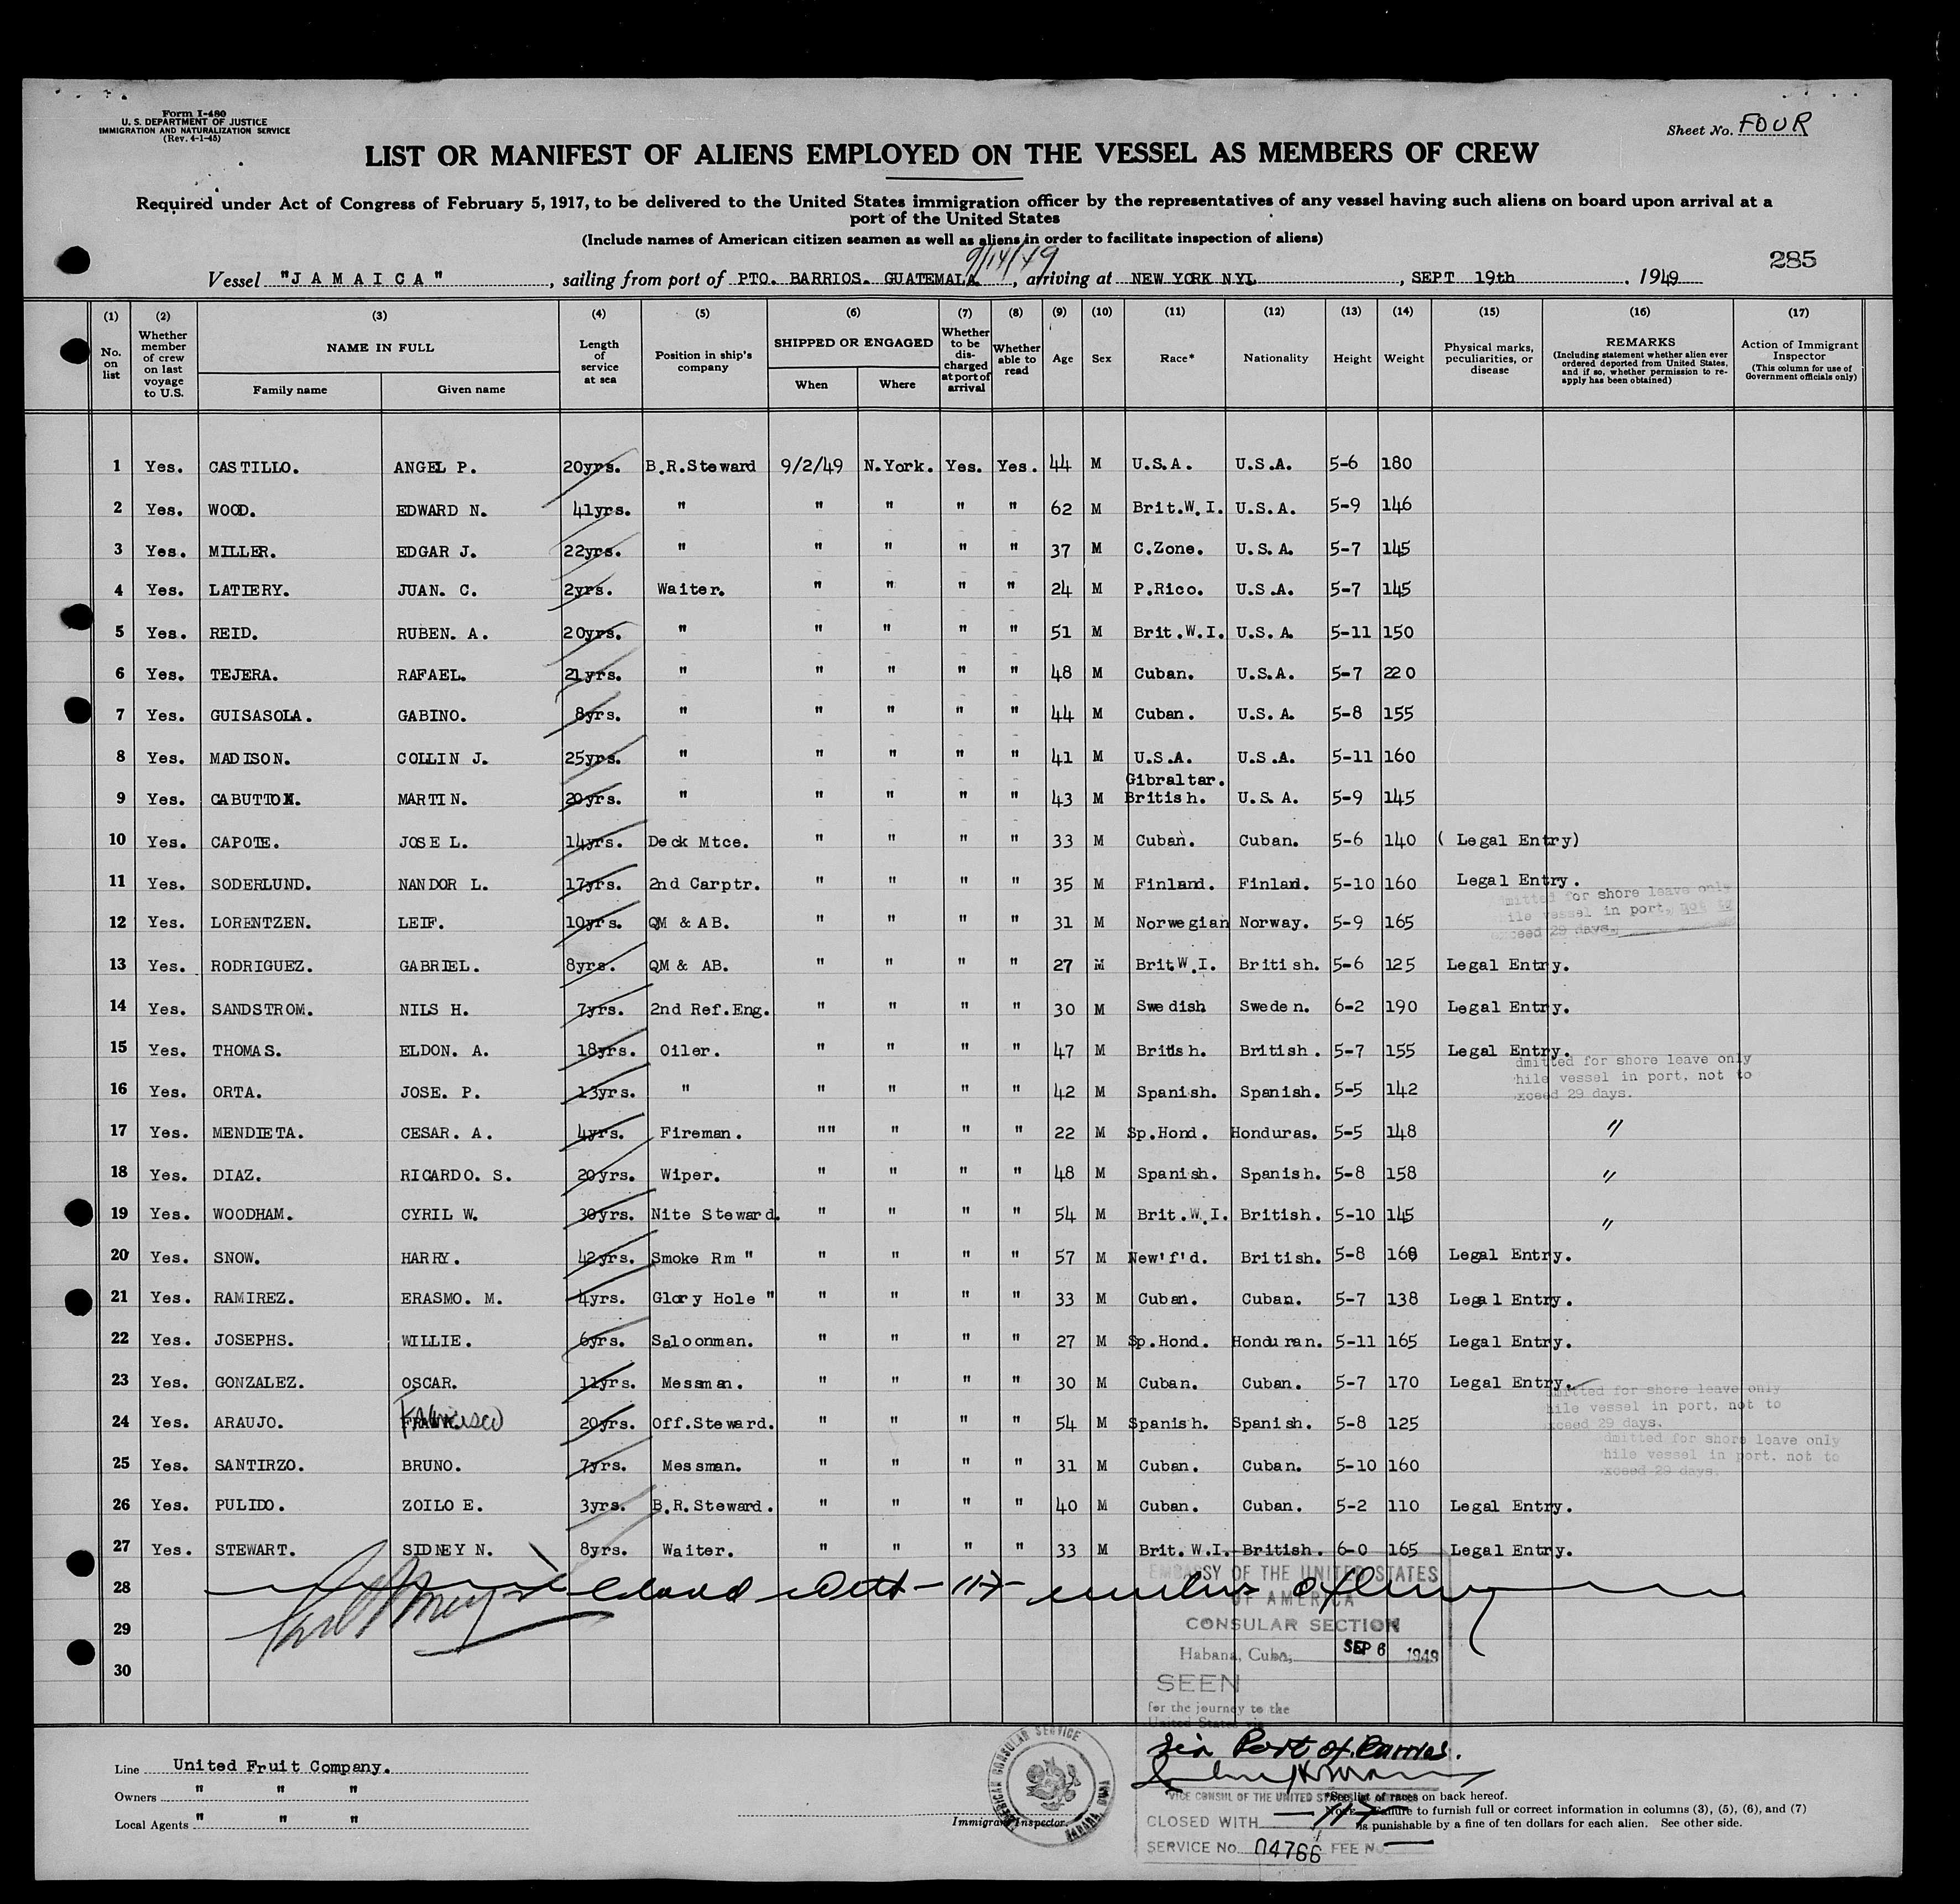 Form I-480
U. S. DEPARTMENT OF JUSTICE
IMMIGRATION AND NATURALIZATION SERVICE
(Rev. 4-1-45)
Sheet No. FOUR
LIST OR MANIFEST OF ALIENS EMPLOYED ON THE VESSEL AS MEMBERS OF CREW
Required under Act of Congress of February 5, 1917, to be delivered to the United States immigration officer by the representatives of any vessel having such aliens on board upon arrival at a
port of the United States
(Include names of American citizen seamen as well as aliens in order to facilitate inspection of aliens)
9/14/49
285
Vessel "JAMAICA", sailing from port of PTO. BARRIOS. GUATEMALA, arriving at NEW YORK NYL, SEPT 19th, 1949
(1) (2) (3) (4) (5) (6) (7) (8) (9) (10) (11) (12) (13) (14) (15) (16) (17)
No. on list Whether member of crew on last voyage to U.S. NAME IN FULL Family name Given name Length of service at sea Position in ship's company SHIPPED OR ENGAGED When Where Whether to be discharged at port of arrival Whether able to read Age Sex Race* Nationality Height Weight Physical marks, peculiarities, or disease REMARKS (Including statement whether alien ever ordered deported from United States, and if so, whether permission to reapply has been obtained) Action of Immigrant Inspector (This column for use of Government officials only)
1 Yes. CASTILLO. ANGEL P. 20yrs. B.R.Steward 9/2/49 N.York. Yes. Yes. 44 M U.S.A. U.S.A. 5-6 180
2 Yes. WOOD. EDWARD N. 41yrs. " " " " " 62 M Brit.W.I. U.S.A. 5-9 146
3 Yes. MILLER. EDGAR J. 22yrs. " " " " " 37 M C.Zone. U.S.A. 5-7 145
4 Yes. LATIERY. JUAN. C. 2yrs. Waiter. " " " " 24 M P.Rico. U.S.A. 5-7 145
5 Yes. REID. RUBEN. A. 20yrs. " " " " " 51 M Brit.W.I. U.S.A. 5-11 150
6 Yes. TEJERA. RAFAEL. 21yrs. " " " " " 48 M Cuban. U.S.A. 5-7 220
7 Yes. GUISASOLA. GABINO. 8yrs. " " " " " 44 M Cuban. U.S.A. 5-8 155
8 Yes. MADISON. COLLIN J. 25yrs. " " " " " 41 M U.S.A. U.S.A. 5-11 160
Gibraltar.
9 Yes. CABUTTON. MARTIN. 20yrs. " " " " " 43 M British. U.S.A. 5-9 145
10 Yes. CAPOTE. JOSE L. 14yrs. Deck Mtce. " " " " 33 M Cuban. Cuban. 5-6 140 ( Legal Entry)
11 Yes. SODERLUND. NANDOR L. 17yrs. 2nd Carptr. " " " " 35 M Finland. Finlan. 5-10 160 Legal Entry.
dmitted for shore leave only
hile vessel in port, not to
xceed 29 days.
12 Yes. LORENTZEN. LEIF. 10yrs. QM & AB. " " " " 31 M Norwegian Norway. 5-9 165
13 Yes. RODRIGUEZ. GABRIEL. 8yrs. QM & AB. " " " " 27 M Brit.W.I. British. 5-6 125 Legal Entry.
14 Yes. SANDSTROM. NILS H. 7yrs. 2nd Ref.Eng. " " " " 30 M Swedish Sweden. 6-2 190 Legal Entry.
15 Yes. THOMAS. ELDON. A. 18yrs. Oiler. " " " " 47 M British. British. 5-7 155 Legal Entry.
dmitted for shore leave only
hile vessel in port, not to
xceed 29 days.
16 Yes. ORTA. JOSE. P. 13yrs. " " " " " 42 M Spanish. Spanish. 5-5 142
17 Yes. MENDIETA. CESAR. A. 4yrs. Fireman. "" " " " 22 M Sp.Hond. Honduras. 5-5 148 "
18 Yes. DIAZ. RICARDO. S. 20yrs. Wiper. " " " " 48 M Spanish. Spanish. 5-8 158 "
19 Yes. WOODHAM. CYRIL W. 30yrs. Nite Steward. " " " " 54 M Brit.W.I. British. 5-10 145 "
20 Yes. SNOW. HARRY. 42yrs. Smoke Rm " " " " " 57 M New'f'd. British. 5-8 168 Legal Entry.
21 Yes. RAMIREZ. ERASMO. M. 4yrs. Glory Hole " " " " " 33 M Cuban. Cuban. 5-7 138 Legal Entry.
22 Yes. JOSEPHS. WILLIE. 6yrs. Saloonman. " " " " 27 M Sp.Hond. Honduran. 5-11 165 Legal Entry.
23 Yes. GONZALEZ. OSCAR. 11yrs. Messman. " " " " 30 M Cuban. Cuban. 5-7 170 Legal Entry.
mitted for shore leave only
hile vessel in port, not to
xceed 29 days.
24 Yes. ARAUJO. Francisco 20yrs. Off.Steward. " " " " 54 M Spanish. Spanish. 5-8 125
dmitted for shore leave only
hile vessel in port, not to
xceed 29 days.
25 Yes. SANTIRZO. BRUNO. 7yrs. Messman. " " " " 31 M Cuban. Cuban. 5-10 160
26 Yes. PULIDO. ZOILO E. 3yrs. B.R.Steward. " " " " 40 M Cuban. Cuban. 5-2 110 Legal Entry.
27 Yes. STEWART. SIDNEY N. 8yrs. Waiter. " " " " 33 M Brit.W.I. British. 6-0 165 Legal Entry.
28 closed with -117- members of crew
29
30
EMBASSY OF THE UNITED STATES
OF AMERICA
CONSULAR SECTION
Habana, Cuba, SEP 6 1949
SEEN
for the journey to the
United States
via Port of Barrios.
VICE CONSUL OF THE UNITED STATES
CLOSED WITH 117
SERVICE No. 04766 FEE No.
AMERICAN CONSULAR SERVICE
HABANA CUBA
Line United Fruit Company.
Owners " " "
Local Agents " " "
Immigrant Inspector.
*See list of races on back hereof.
NOTE.—Failure to furnish full or correct information in columns (3), (5), (6), and (7)
is punishable by a fine of ten dollars for each alien. See other side.